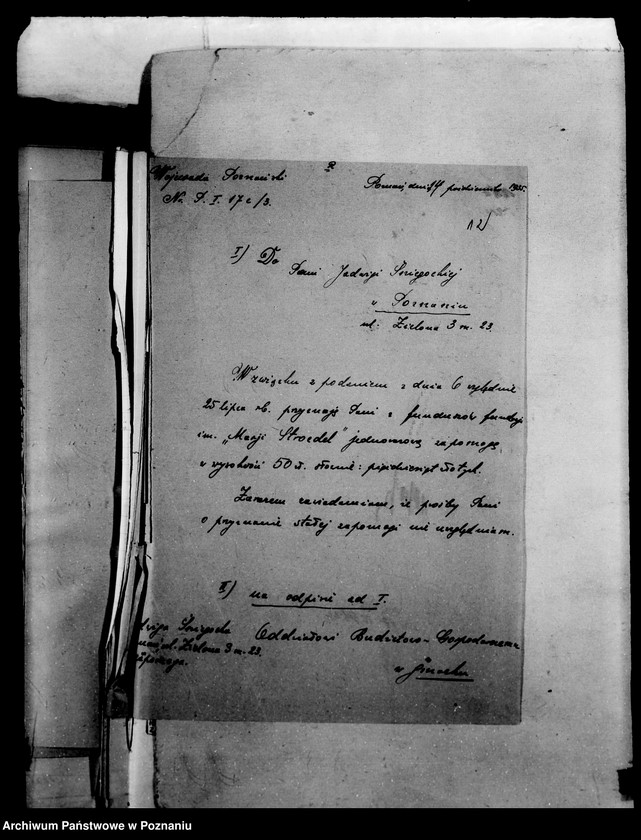 Wojewoda Poznański
Poznań, dnia 14 października 1935.
No P. I. 17 c/3.
12
I) Do
Pani Jadwigi
w Poznaniu
ul: Zielona 3 m. 23.
W związku z podaniem z dnia 6 względnie
25 lipca rb. przyznaję Pani z funduszów fundacji
im. „Marji Stroedel" jednorazową zapomogę
w wysokości 50 zł. słownie: pięćdziesiąt złotych.
Zarazem zawiadamiam, że prośby Pani
o przyznanie stałej zapomogi nie uwzględniam.
II) na odpisie ad I.
Oddziałowi Budżetowo-Gospodarczemu
w
ul. Zielona 3 m. 23.
zapomoga.
Archiwum Państwowe w Poznaniu